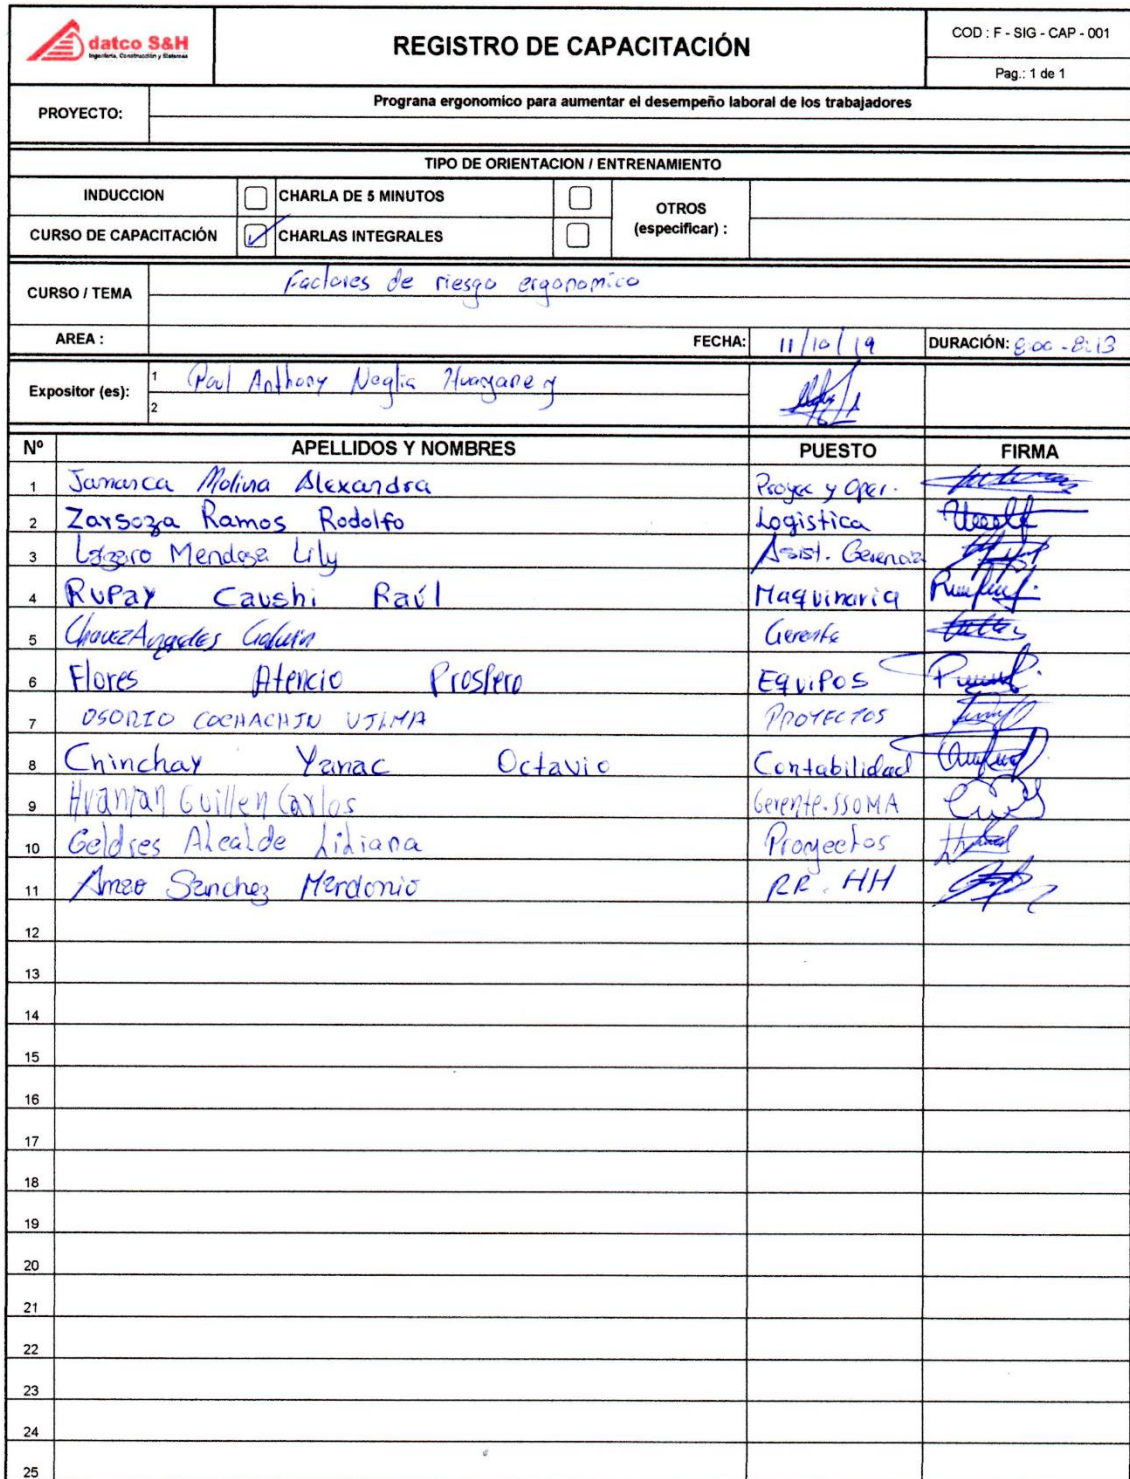 datco S&H
Ingeniería, Construcción y Sistemas
REGISTRO DE CAPACITACIÓN
COD : F - SIG - CAP - 001
Pag.: 1 de 1
PROYECTO: Programa ergonomico para aumentar el desempeño laboral de los trabajadores
TIPO DE ORIENTACION / ENTRENAMIENTO
INDUCCION CHARLA DE 5 MINUTOS
OTROS (especificar) :
CURSO DE CAPACITACIÓN CHARLAS INTEGRALES
CURSO / TEMA Factores de riesgo ergonomico
AREA : FECHA: 11/10/19 DURACIÓN: 8:00 - 8:13
Expositor (es): 1 Paul Anthony Neglia
2
Nº APELLIDOS Y NOMBRES PUESTO FIRMA
1 Jamanca Molina Alexandra Proyec y Oper.
2 Zarsoza Ramos Rodolfo Logistica
3 Lazaro Mendoza Lily Asist. Gerencia
4 Rupay Caushi Raúl Maquinaria
5 Chavez Angeles Gerente
6 Flores Atencio Prospero Equipos
7 OSORIO COCHACHIN VILMA PROYECTOS
8 Chinchay Yanac Octavio Contabilidad
9 Huaman Guillen Carlos Gerente. SSOMA
10 Geldres Alcalde Liliana Proyectos
11 Amao Sanchez Mardonio RR. HH
12
13
14
15
16
17
18
19
20
21
22
23
24
25